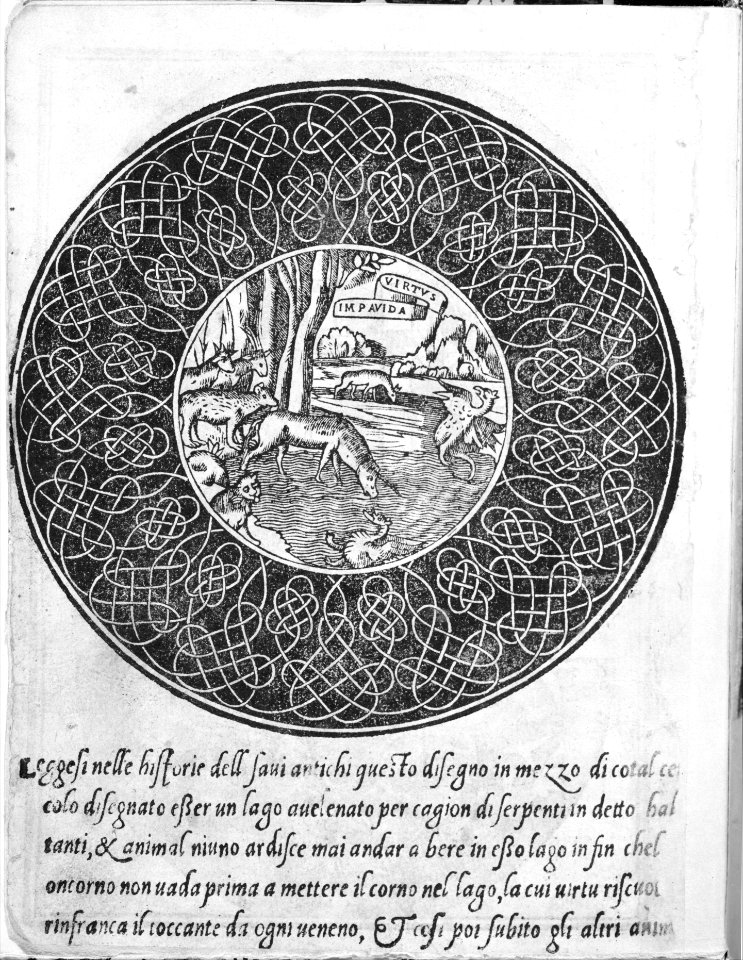 VIRTVS
IMPAVIDA
Leggesi nelle historie dell saui antichi questo disegno in mezzo di cotal
colo disegnato eßer un lago auelenato per cagion di serpenti in detto
tanti, & animal niuno ardisce mai andar a bere in eßo lago in fin chel
oncorno non uada prima a mettere il corno nel lago, la cui uirtu
rinfranca il toccante da ogni ueneno, Et cosi poi subito gli altri